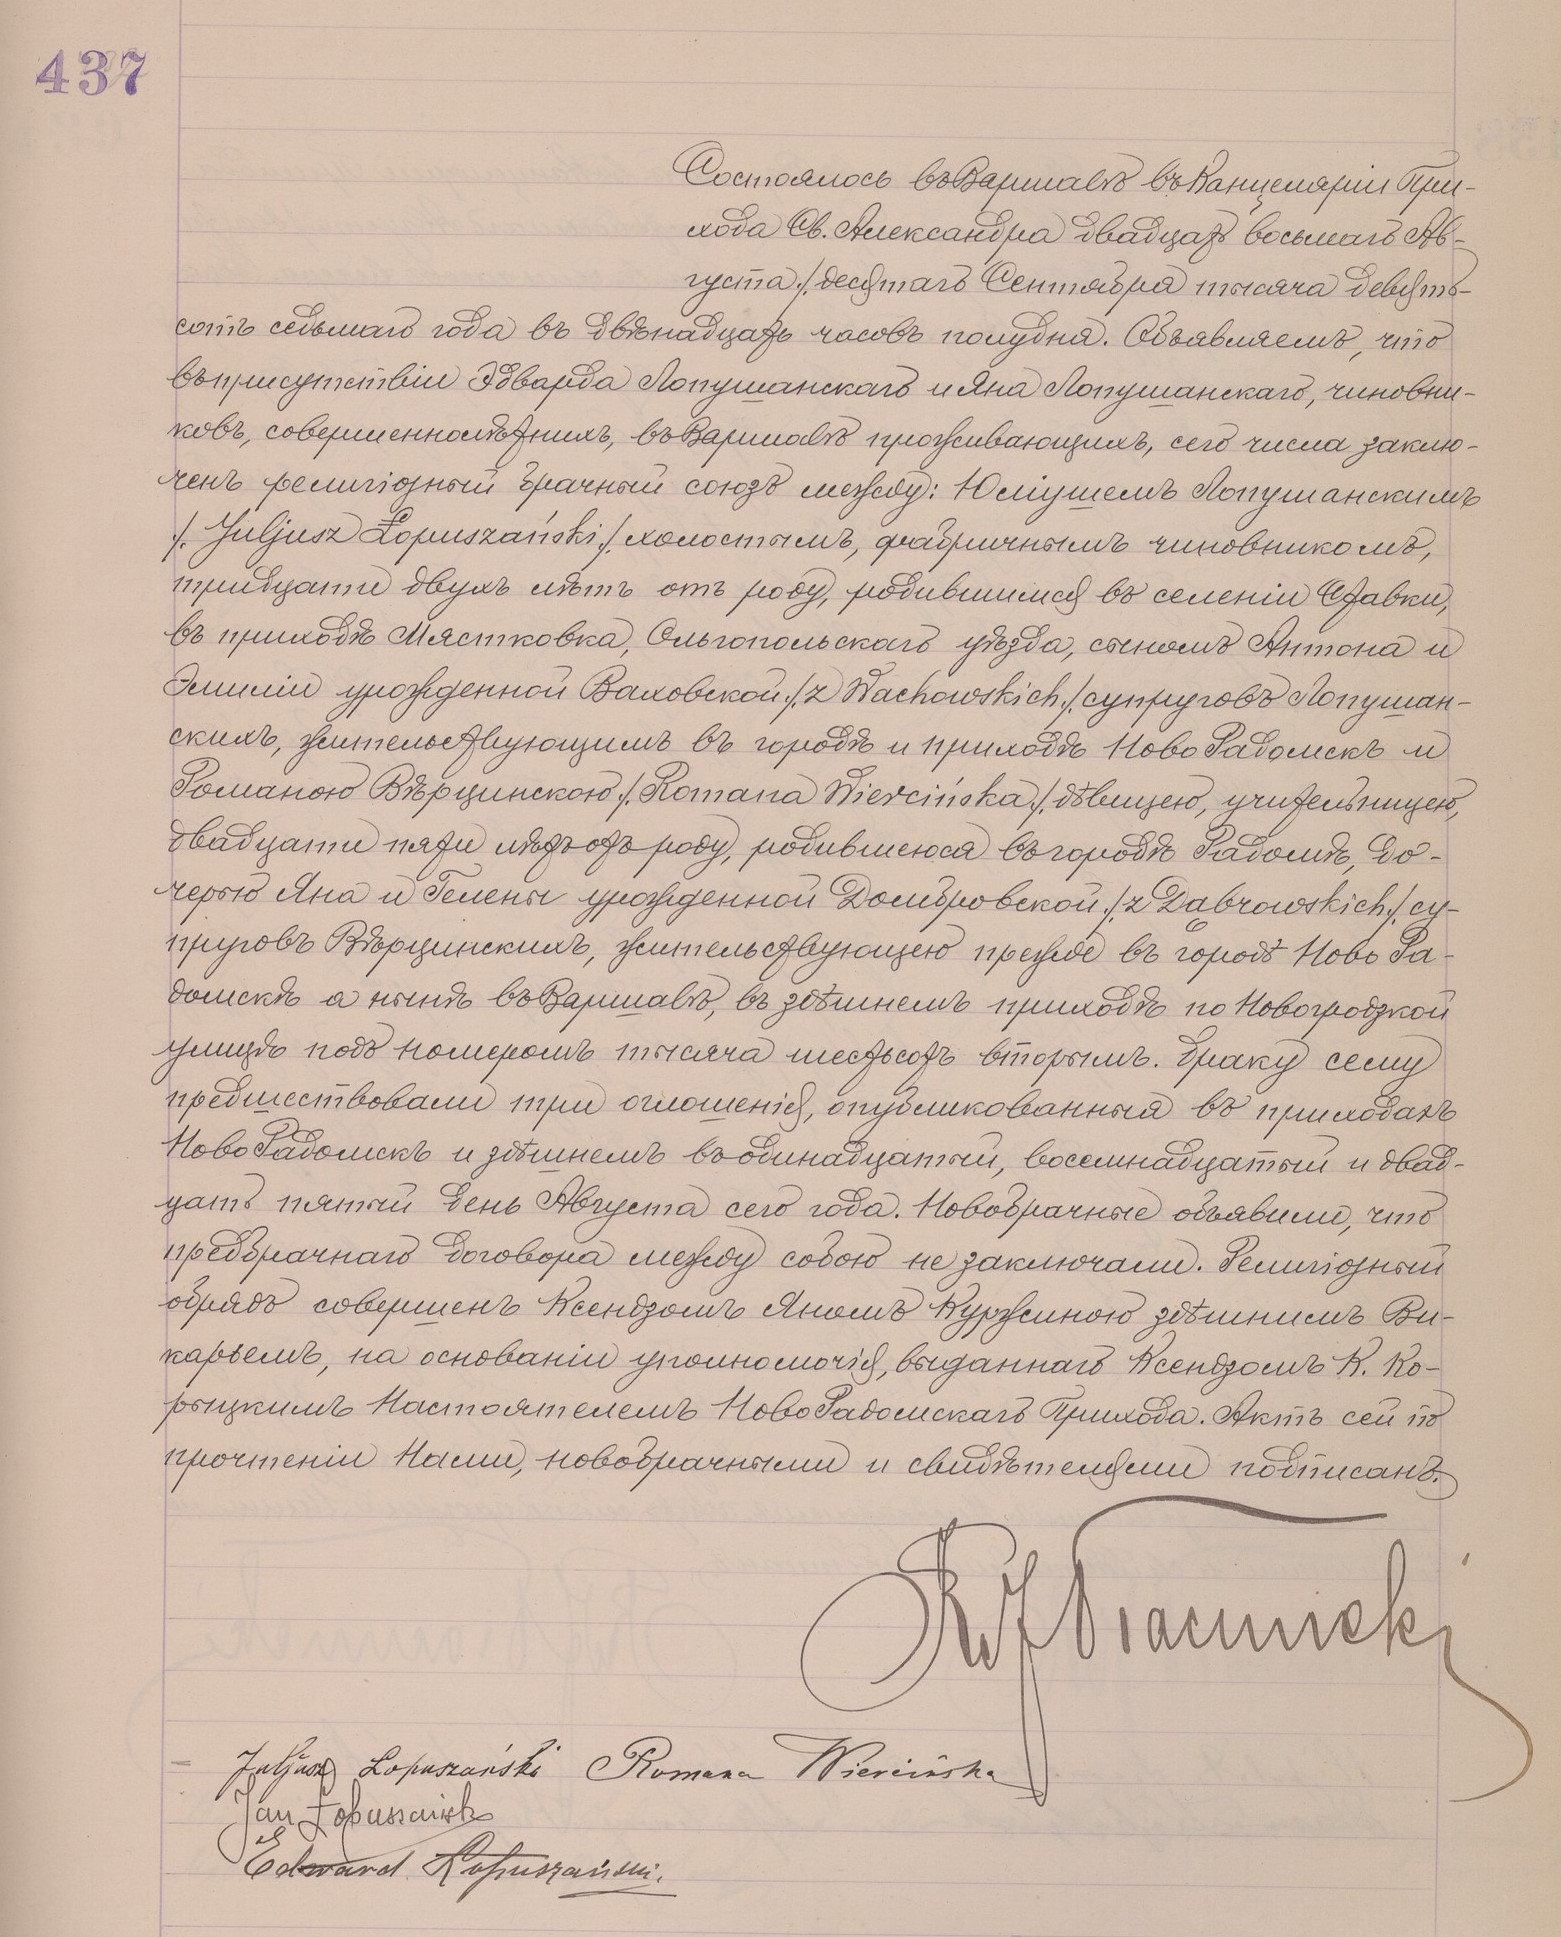 437
Состоялось въ Варшавѣ въ Канцеляріи При-
хода Св. Александра двадцать восьмаго Ав-
густа /. десятаго Сентября тысяча девять-
сотъ седьмаго года въ двѣнадцать часовъ полудня. Объявляемъ, что
въ присутствіи Эдварда Лопушанскаго и Яна Лопушанскаго, чиновни-
ковъ, совершеннолѣтнихъ, въ Варшавѣ проживающихъ, сего числа заклю-
ченъ религіозный брачный союзъ между: Юліушемъ Лопушанскимъ
/. Juljusz Łopuszański ./ холостымъ, фабричнымъ чиновникомъ,
тридцати двухъ лѣтъ отъ роду, родившимся въ селеніи Ставки,
въ приходѣ Мястковка, Ольгопольскаго уѣзда, сыномъ Антона и
Эмиліи урожденной Ваховской ./. z Wachowskich ./. супруговъ Лопушан-
скихъ, жительствующимъ въ городѣ и приходѣ Ново Радомскъ и
Романою Вѣрцинскою ./. Romana Wiercińska ./. дѣвицею, учительницею,
двадцати пяти лѣтъ отъ роду, родившеюся въ городѣ Радомѣ, до-
черью Яна и Гелены урожденной Домбровской ./. z Dąbrowskich ./. су-
пруговъ Вѣрцинскихъ, жительствующею прежде въ городѣ Ново Ра-
домскѣ а нынѣ въ Варшавѣ, въ здѣшнемъ приходѣ по Новогродзкой
улицѣ подъ номеромъ тысяча шестьсотъ вторымъ. Браку сему
предшествовали три оглошенія, опубликованныя въ приходахъ
Ново Радомскъ и здѣшнемъ въ одинадцатый, восемнадцатый и двад-
цать пятый день Августа сего года. Новобрачные объявили, что
предбрачнаго договора между собою не заключали. Религіозный
обрядъ совершенъ Ксендзомъ Яномъ Куржиною здѣшнимъ Ви-
карьемъ, на основаніи уполномочія, выданнаго Ксендзомъ К. Ко-
рыцкимъ Настоятелемъ Ново Радомскаго Прихода. Актъ сей по
прочтеніи Нами, новобрачными и свидѣтелями подписанъ.
Juljusz Łopuszański Romana Wiercińska
Jan Łopuszański
Edward Łopuszański.